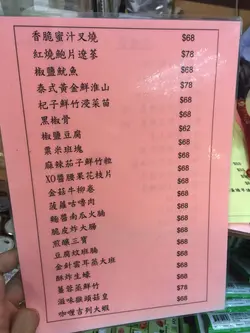 香脆蜜汁叉燒 $68
紅燒鮑片遼菜 $78
椒鹽魷魚 $68
泰式黃金鮮淮山 $78
杞子鮮竹浸菜苗 $68
黑椒骨 $68
椒鹽豆腐 $62
粟米班塊 $68
麻辣茄子鮮竹粒 $68
XO醬腰果花枝片 $68
金菇牛柳卷 $68
菠蘿咕嚕肉 $68
麵醬南瓜火腩 $68
脆皮炸大腸 $68
煎釀三寶 $68
豆腐炆班腩 $68
金針雲耳蒸大班 $68
酥炸生蠔 $78
蕃茄蒸鮮竹 $78
滋味猴頭菇皇 $68
咖喱吉列大蝦 $68